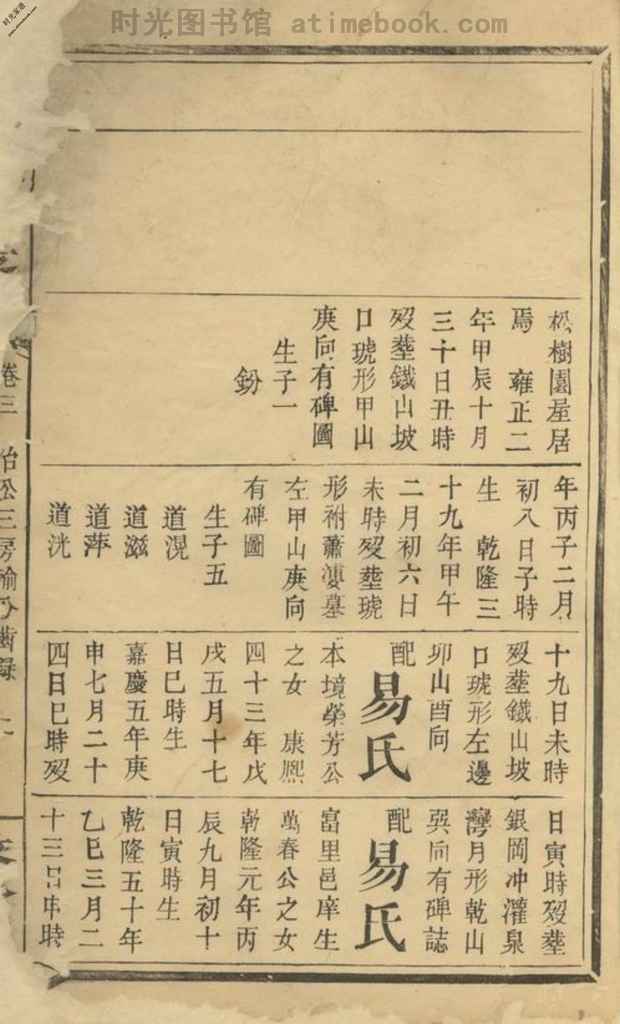 时光图书馆 atimebook.com
时光家谱
松樹園星居
焉 雍正二
年甲辰十月
三十日丑時
歿塟鐵山坡
口琥形甲山
庚向有碑圖
生子一
鈖
年丙子二月
初八日子時
生 乾隆三
十九年甲午
二月初六日
未時歿塟琥
形祔蕭婆墓
左甲山庚向
有碑圖
生子五
道滉
道滋
道萍
道洸
十九日未時
歿塟鐵山坡
口琥形左邊
卯山酉向
配易氏
本境榮芳公
之女 康熈
四十三年戊
戌五月十七
日巳時生
嘉慶五年庚
申七月二十
四日巳時歿
日寅時歿塟
銀岡冲灌泉
灣月形乾山
巽向有碑誌
配易氏
富里邑庠生
萬春公之女
乾隆元年丙
辰九月初十
日寅時生
乾隆五十年
乙巳三月二
十三日申時
卷三 怡松三房瑜分齒錄